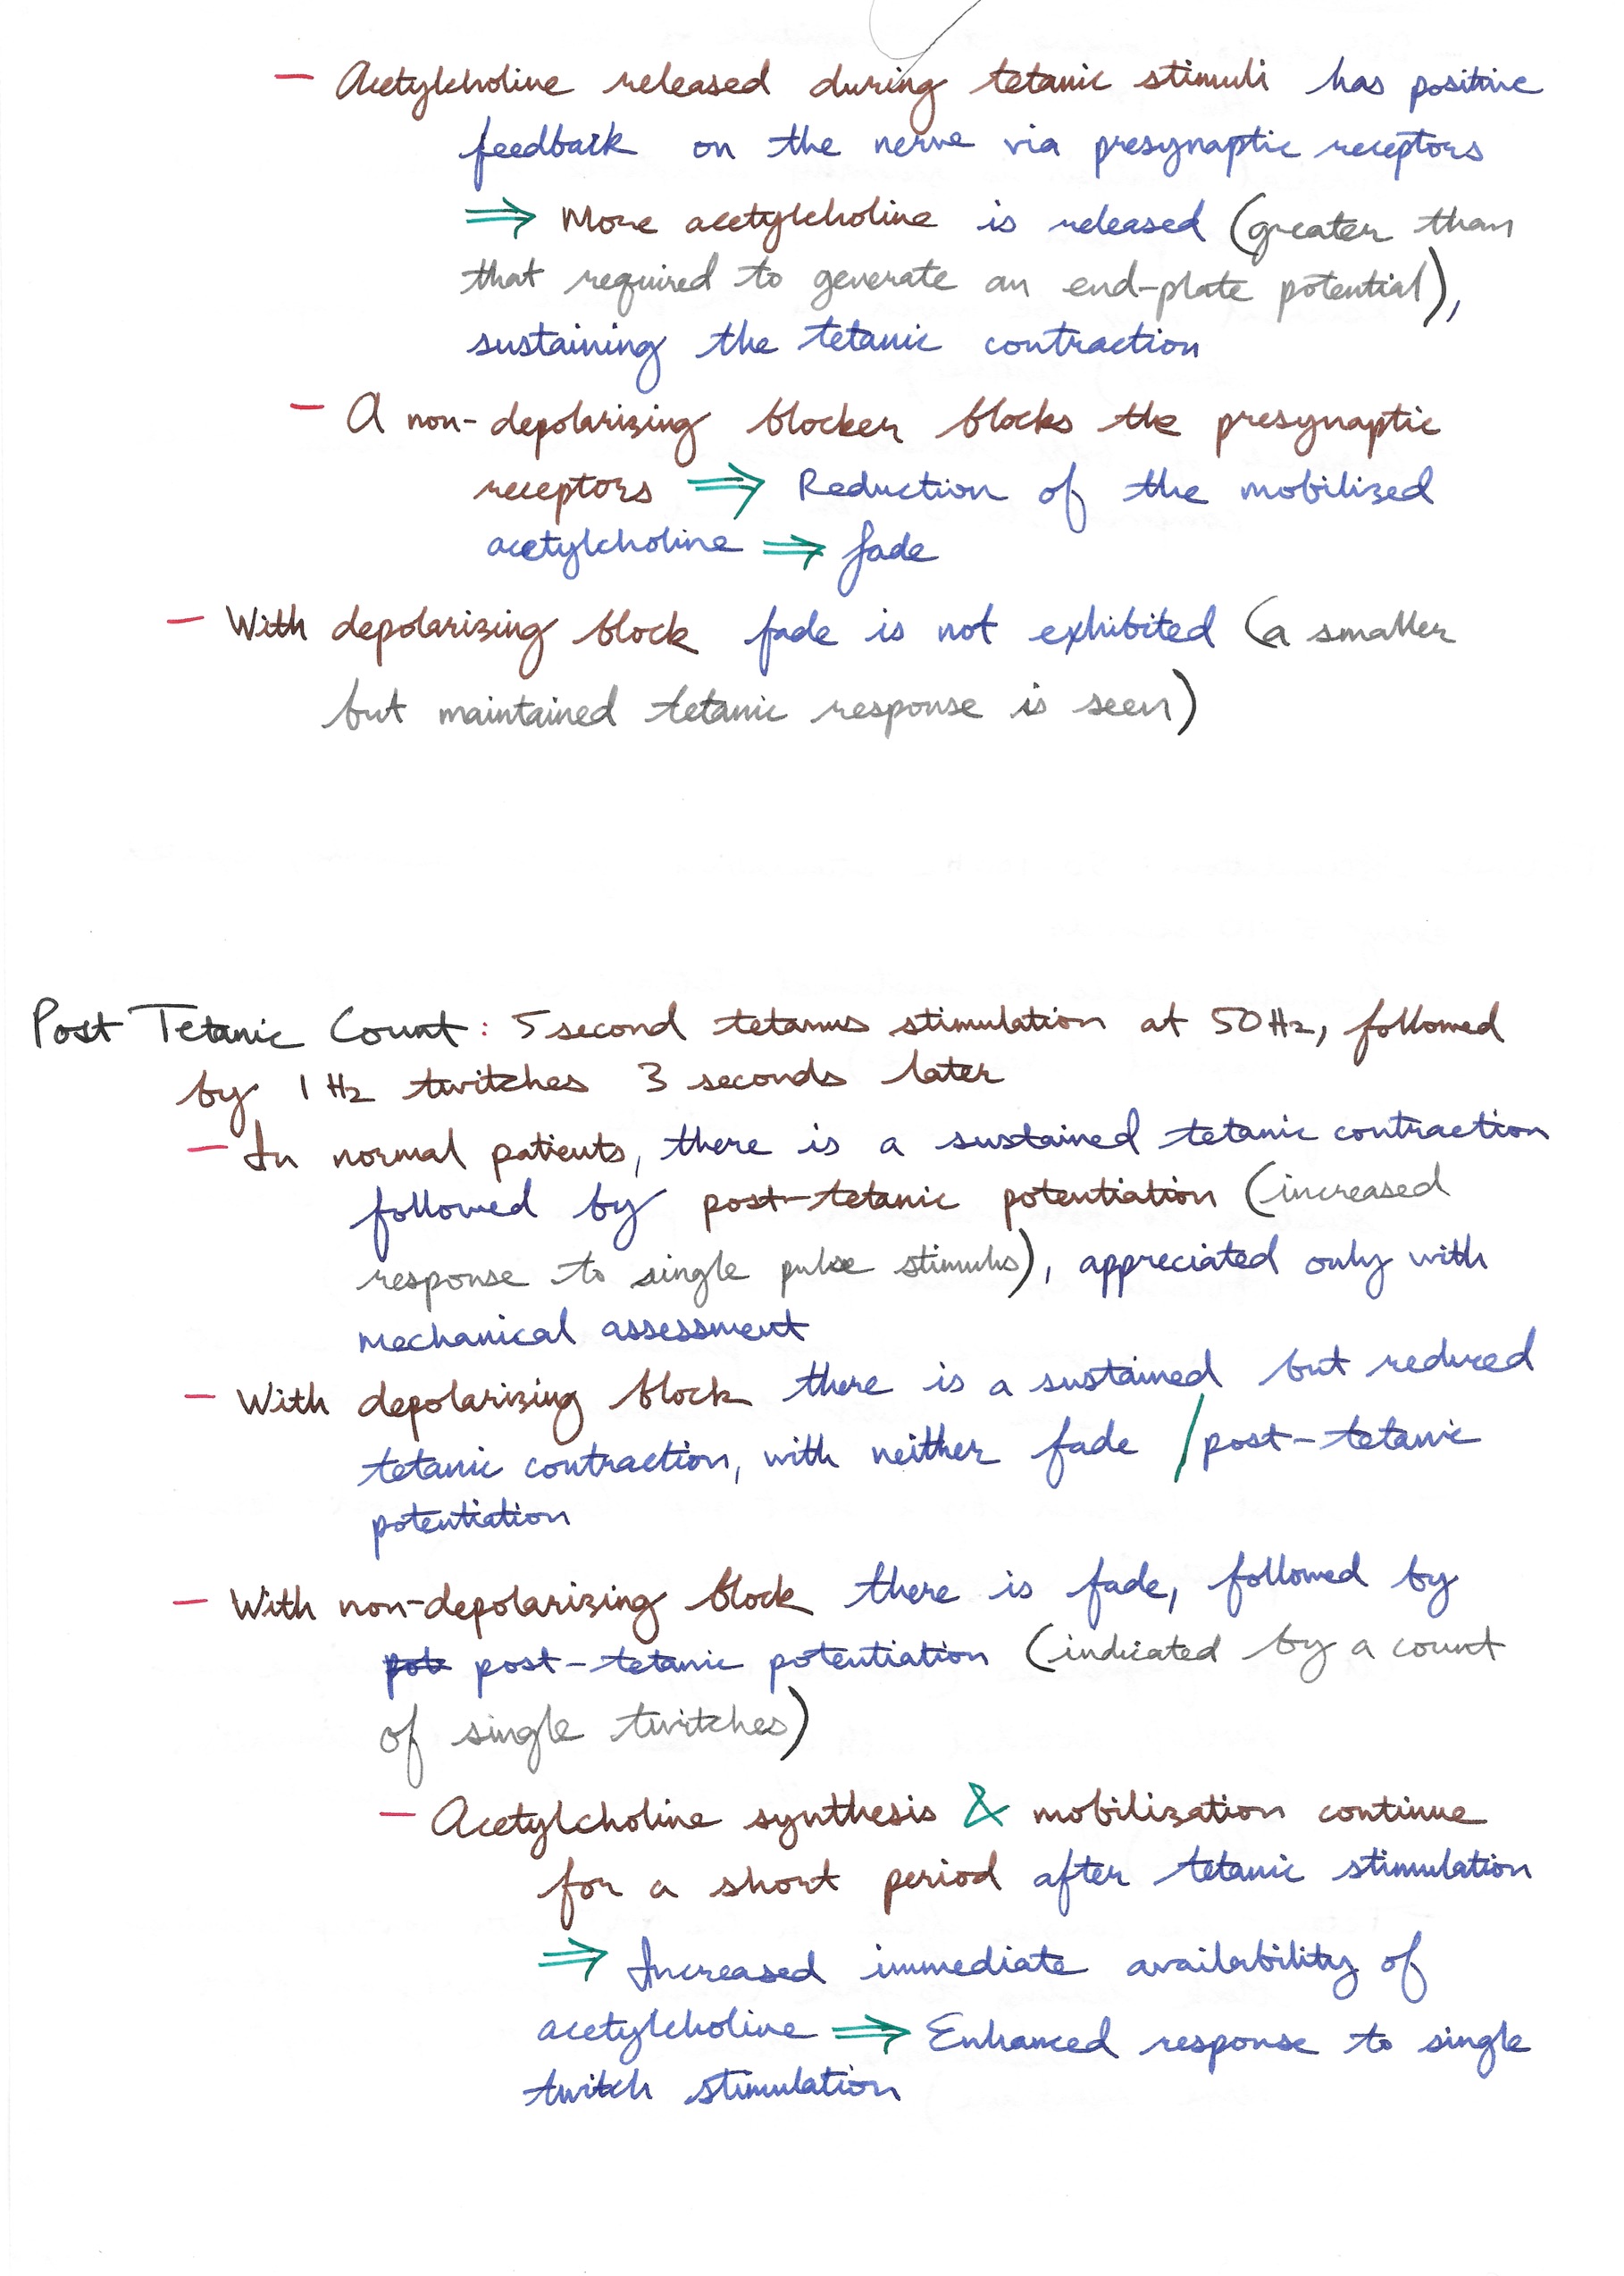 — Acetylcholine released during tetanic stimuli has positive
feedback on the nerve via presynaptic receptors
⇒ More acetylcholine is released (greater than
that required to generate an end-plate potential),
sustaining the tetanic contraction
— A non-depolarizing blocker blocks the presynaptic
receptors ⇒ Reduction of the mobilized
acetylcholine ⇒ fade
— With depolarizing block fade is not exhibited (a smaller
but maintained tetanic response is seen)
Post Tetanic Count: 5 second tetanus stimulation at 50 Hz, followed
by 1 Hz twitches 3 seconds later
— In normal patients, there is a sustained tetanic contraction
followed by post-tetanic potentiation (increased
response to single pulse stimulus), appreciated only with
mechanical assessment
— With depolarizing block there is a sustained but reduced
tetanic contraction, with neither fade / post-tetanic
potentiation
— With non-depolarizing block there is fade, followed by
post-tetanic potentiation (indicated by a count
of single twitches)
— Acetylcholine synthesis & mobilization continue
for a short period after tetanic stimulation
⇒ Increased immediate availability of
acetylcholine ⇒ Enhanced response to single
twitch stimulation